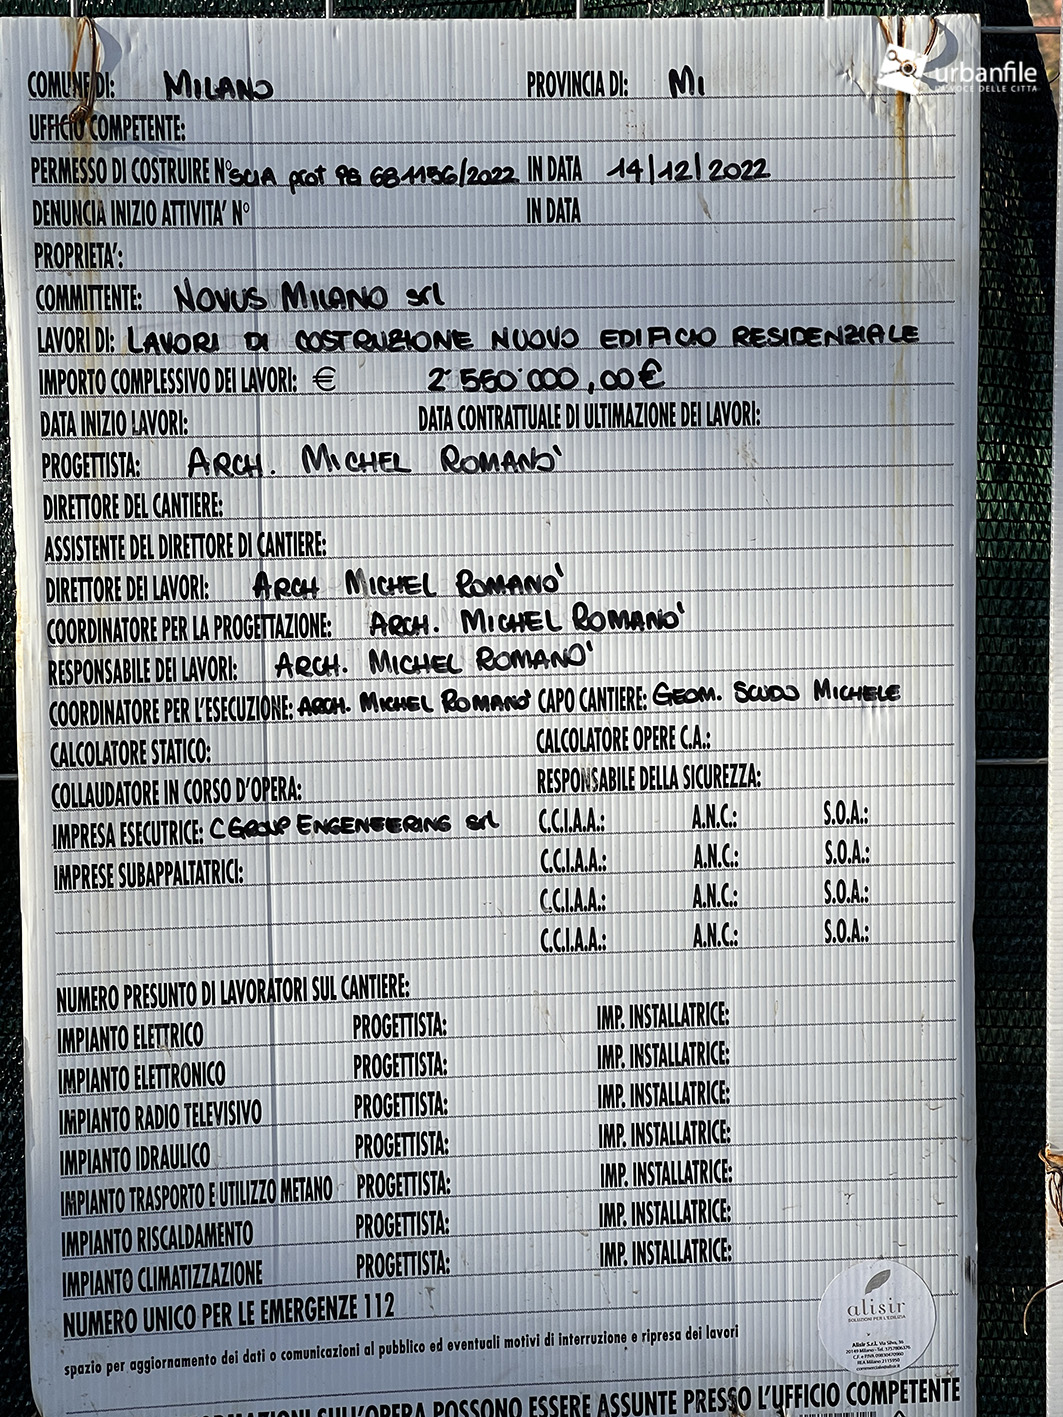 urbanfile
LA VOCE DELLE CITTÀ
COMUNE DI: MILANO PROVINCIA DI: MI
UFFICIO COMPETENTE:
PERMESSO DI COSTRUIRE N° SCIA prot PG 681156/2022 IN DATA 14/12/2022
DENUNCIA INIZIO ATTIVITA' N° IN DATA
PROPRIETA':
COMMITTENTE: NOVUS MILANO srl
LAVORI DI: LAVORI DI COSTRUZIONE NUOVO EDIFICIO RESIDENZIALE
IMPORTO COMPLESSIVO DEI LAVORI: € 2'550'000,00€
DATA INIZIO LAVORI: DATA CONTRATTUALE DI ULTIMAZIONE DEI LAVORI:
PROGETTISTA: ARCH. MICHEL ROMANO'
DIRETTORE DEL CANTIERE:
ASSISTENTE DEL DIRETTORE DI CANTIERE:
DIRETTORE DEI LAVORI: ARCH MICHEL ROMANO'
COORDINATORE PER LA PROGETTAZIONE: ARCH. MICHEL ROMANO'
RESPONSABILE DEI LAVORI: ARCH. MICHEL ROMANO'
COORDINATORE PER L'ESECUZIONE: ARCH. MICHEL ROMANO' CAPO CANTIERE: GEOM. SCUDO MICHELE
CALCOLATORE STATICO: CALCOLATORE OPERE C.A.:
COLLAUDATORE IN CORSO D'OPERA: RESPONSABILE DELLA SICUREZZA:
IMPRESA ESECUTRICE: CGROUP ENGENEERING srl C.C.I.A.A.: A.N.C.: S.O.A.:
IMPRESE SUBAPPALTATRICI: C.C.I.A.A.: A.N.C.: S.O.A.:
C.C.I.A.A.: A.N.C.: S.O.A.:
C.C.I.A.A.: A.N.C.: S.O.A.:
NUMERO PRESUNTO DI LAVORATORI SUL CANTIERE:
IMPIANTO ELETTRICO PROGETTISTA: IMP. INSTALLATRICE:
IMPIANTO ELETTRONICO PROGETTISTA: IMP. INSTALLATRICE:
IMPIANTO RADIO TELEVISIVO PROGETTISTA: IMP. INSTALLATRICE:
IMPIANTO IDRAULICO PROGETTISTA: IMP. INSTALLATRICE:
IMPIANTO TRASPORTO E UTILIZZO METANO PROGETTISTA: IMP. INSTALLATRICE:
IMPIANTO RISCALDAMENTO PROGETTISTA: IMP. INSTALLATRICE:
IMPIANTO CLIMATIZZAZIONE PROGETTISTA: IMP. INSTALLATRICE:
NUMERO UNICO PER LE EMERGENZE 112
spazio per aggiornamento dei dati o comunicazioni al pubblico ed eventuali motivi di interruzione e ripresa dei lavori
alisir
SOLUZIONI PER L'EDILIZIA
Alisir S.r.l. Via Silva, 36
20149 Milano
REA Milano 2115950
SULL'OPERA POSSONO ESSERE ASSUNTE PRESSO L'UFFICIO COMPETENTE